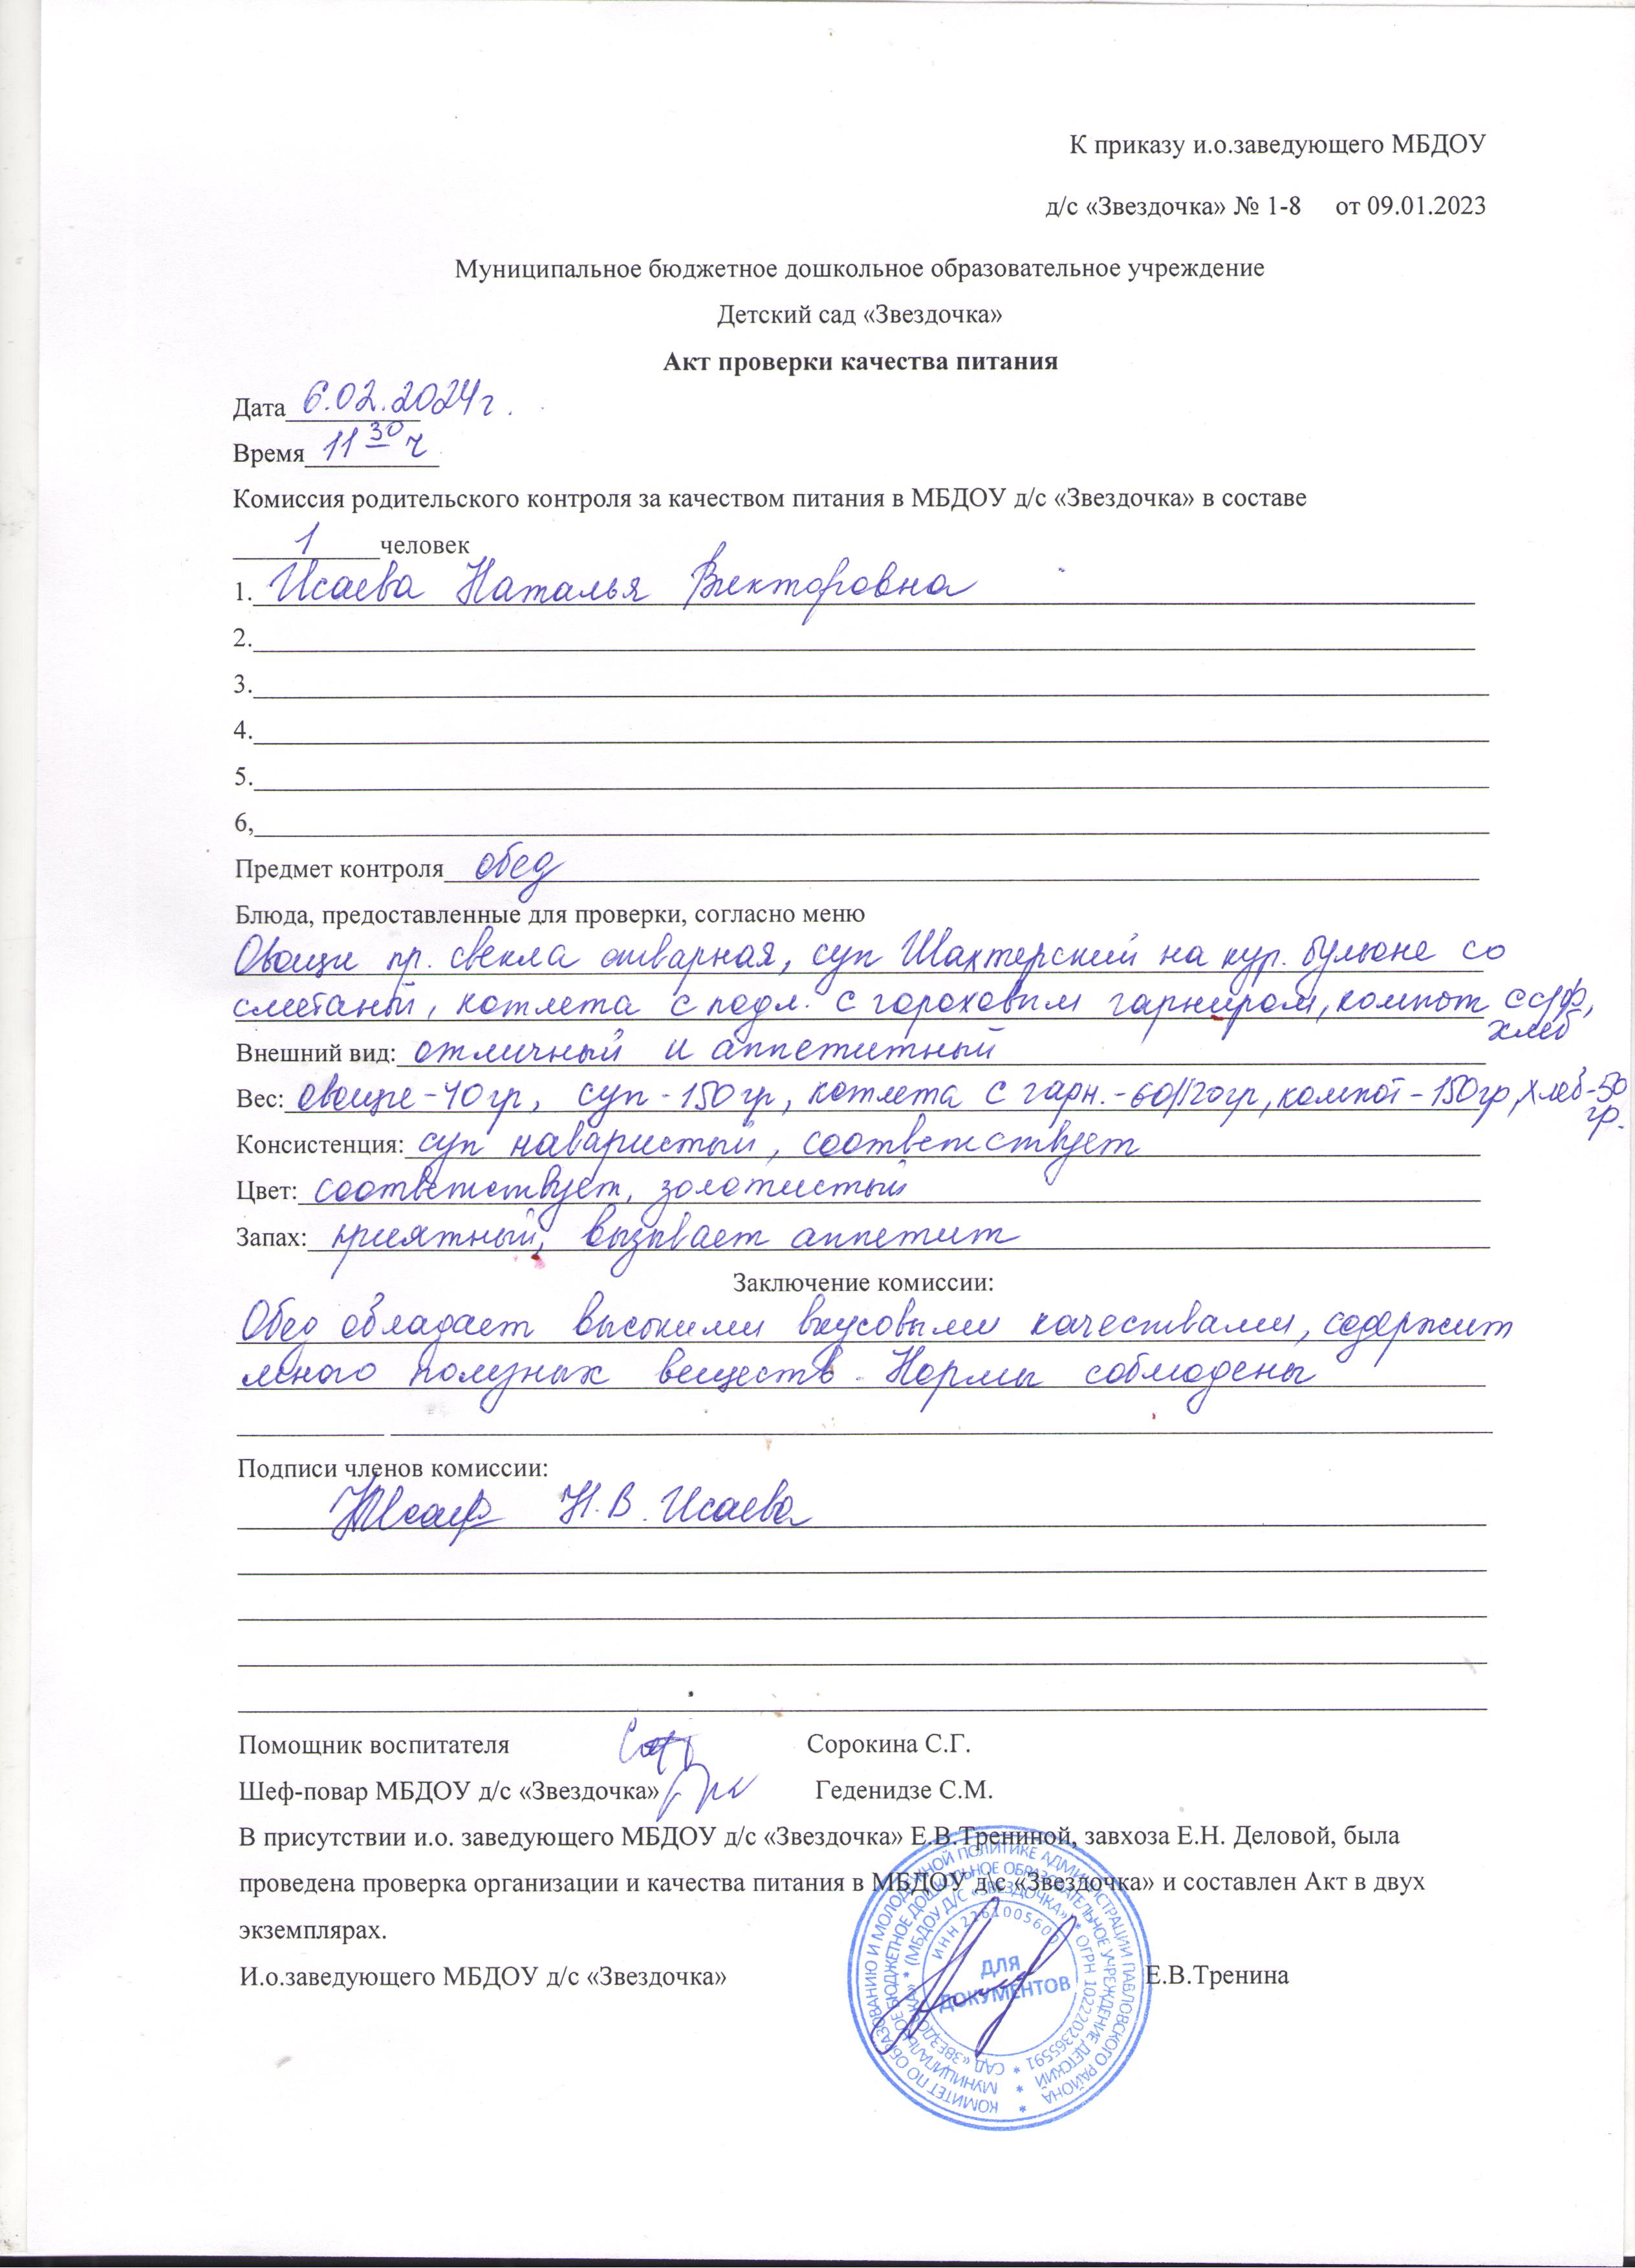 К приказу и.о.заведующего МБДОУ
д/с «Звездочка» № 1-8 от 09.01.2023
Муниципальное бюджетное дошкольное образовательное учреждение
Детский сад «Звездочка»
Акт проверки качества питания
Дата 6.02.2024г.
Время 11 30 ч
Комиссия родительского контроля за качеством питания в МБДОУ д/с «Звездочка» в составе
1 человек
1. Исаева Наталья Викторовна
2.
3.
4.
5.
6,
Предмет контроля обед
Блюда, предоставленные для проверки, согласно меню
Овощи пр. свекла отварная, суп Шахтерский на кур. бульоне со
сметаной, котлета с подл. с гороховым гарниром, компот с с/ф,
хлеб
Внешний вид: отличный и аппетитный
Вес: овощи-40гр, суп-150гр, котлета с гарн.-60/120гр, компот-150гр, хлеб-50
гр.
Консистенция: суп наваристый, соответствует
Цвет: соответствует, золотистый
Запах: приятный, вызывает аппетит
Заключение комиссии:
Обед обладает высокими вкусовыми качествами, содержит
много полезных веществ. Нормы соблюдены
Подписи членов комиссии:
Н.В.Исаева
Помощник воспитателя Сорокина С.Г.
Шеф-повар МБДОУ д/с «Звездочка» Геденидзе С.М.
В присутствии и.о. заведующего МБДОУ д/с «Звездочка» Е.В.Трениной, завхоза Е.Н. Деловой, была
проведена проверка организации и качества питания в МБДОУ д/с «Звездочка» и составлен Акт в двух
экземплярах.
И.о.заведующего МБДОУ д/с «Звездочка» Е.В.Тренина
КОМИТЕТ ПО ОБРАЗОВАНИЮ И МОЛОДЕЖНОЙ ПОЛИТИКЕ АДМИНИСТРАЦИИ ПАВЛОВСКОГО РАЙОНА *
МУНИЦИПАЛЬНОЕ БЮДЖЕТНОЕ ДОШКОЛЬНОЕ ОБРАЗОВАТЕЛЬНОЕ УЧРЕЖДЕНИЕ ДЕТСКИЙ *
САД «ЗВЕЗДОЧКА» * (МБДОУ Д/С «ЗВЕЗДОЧКА») * ОГРН 1022202365591 *
ИНН
ДЛЯ
ДОКУМЕНТОВ